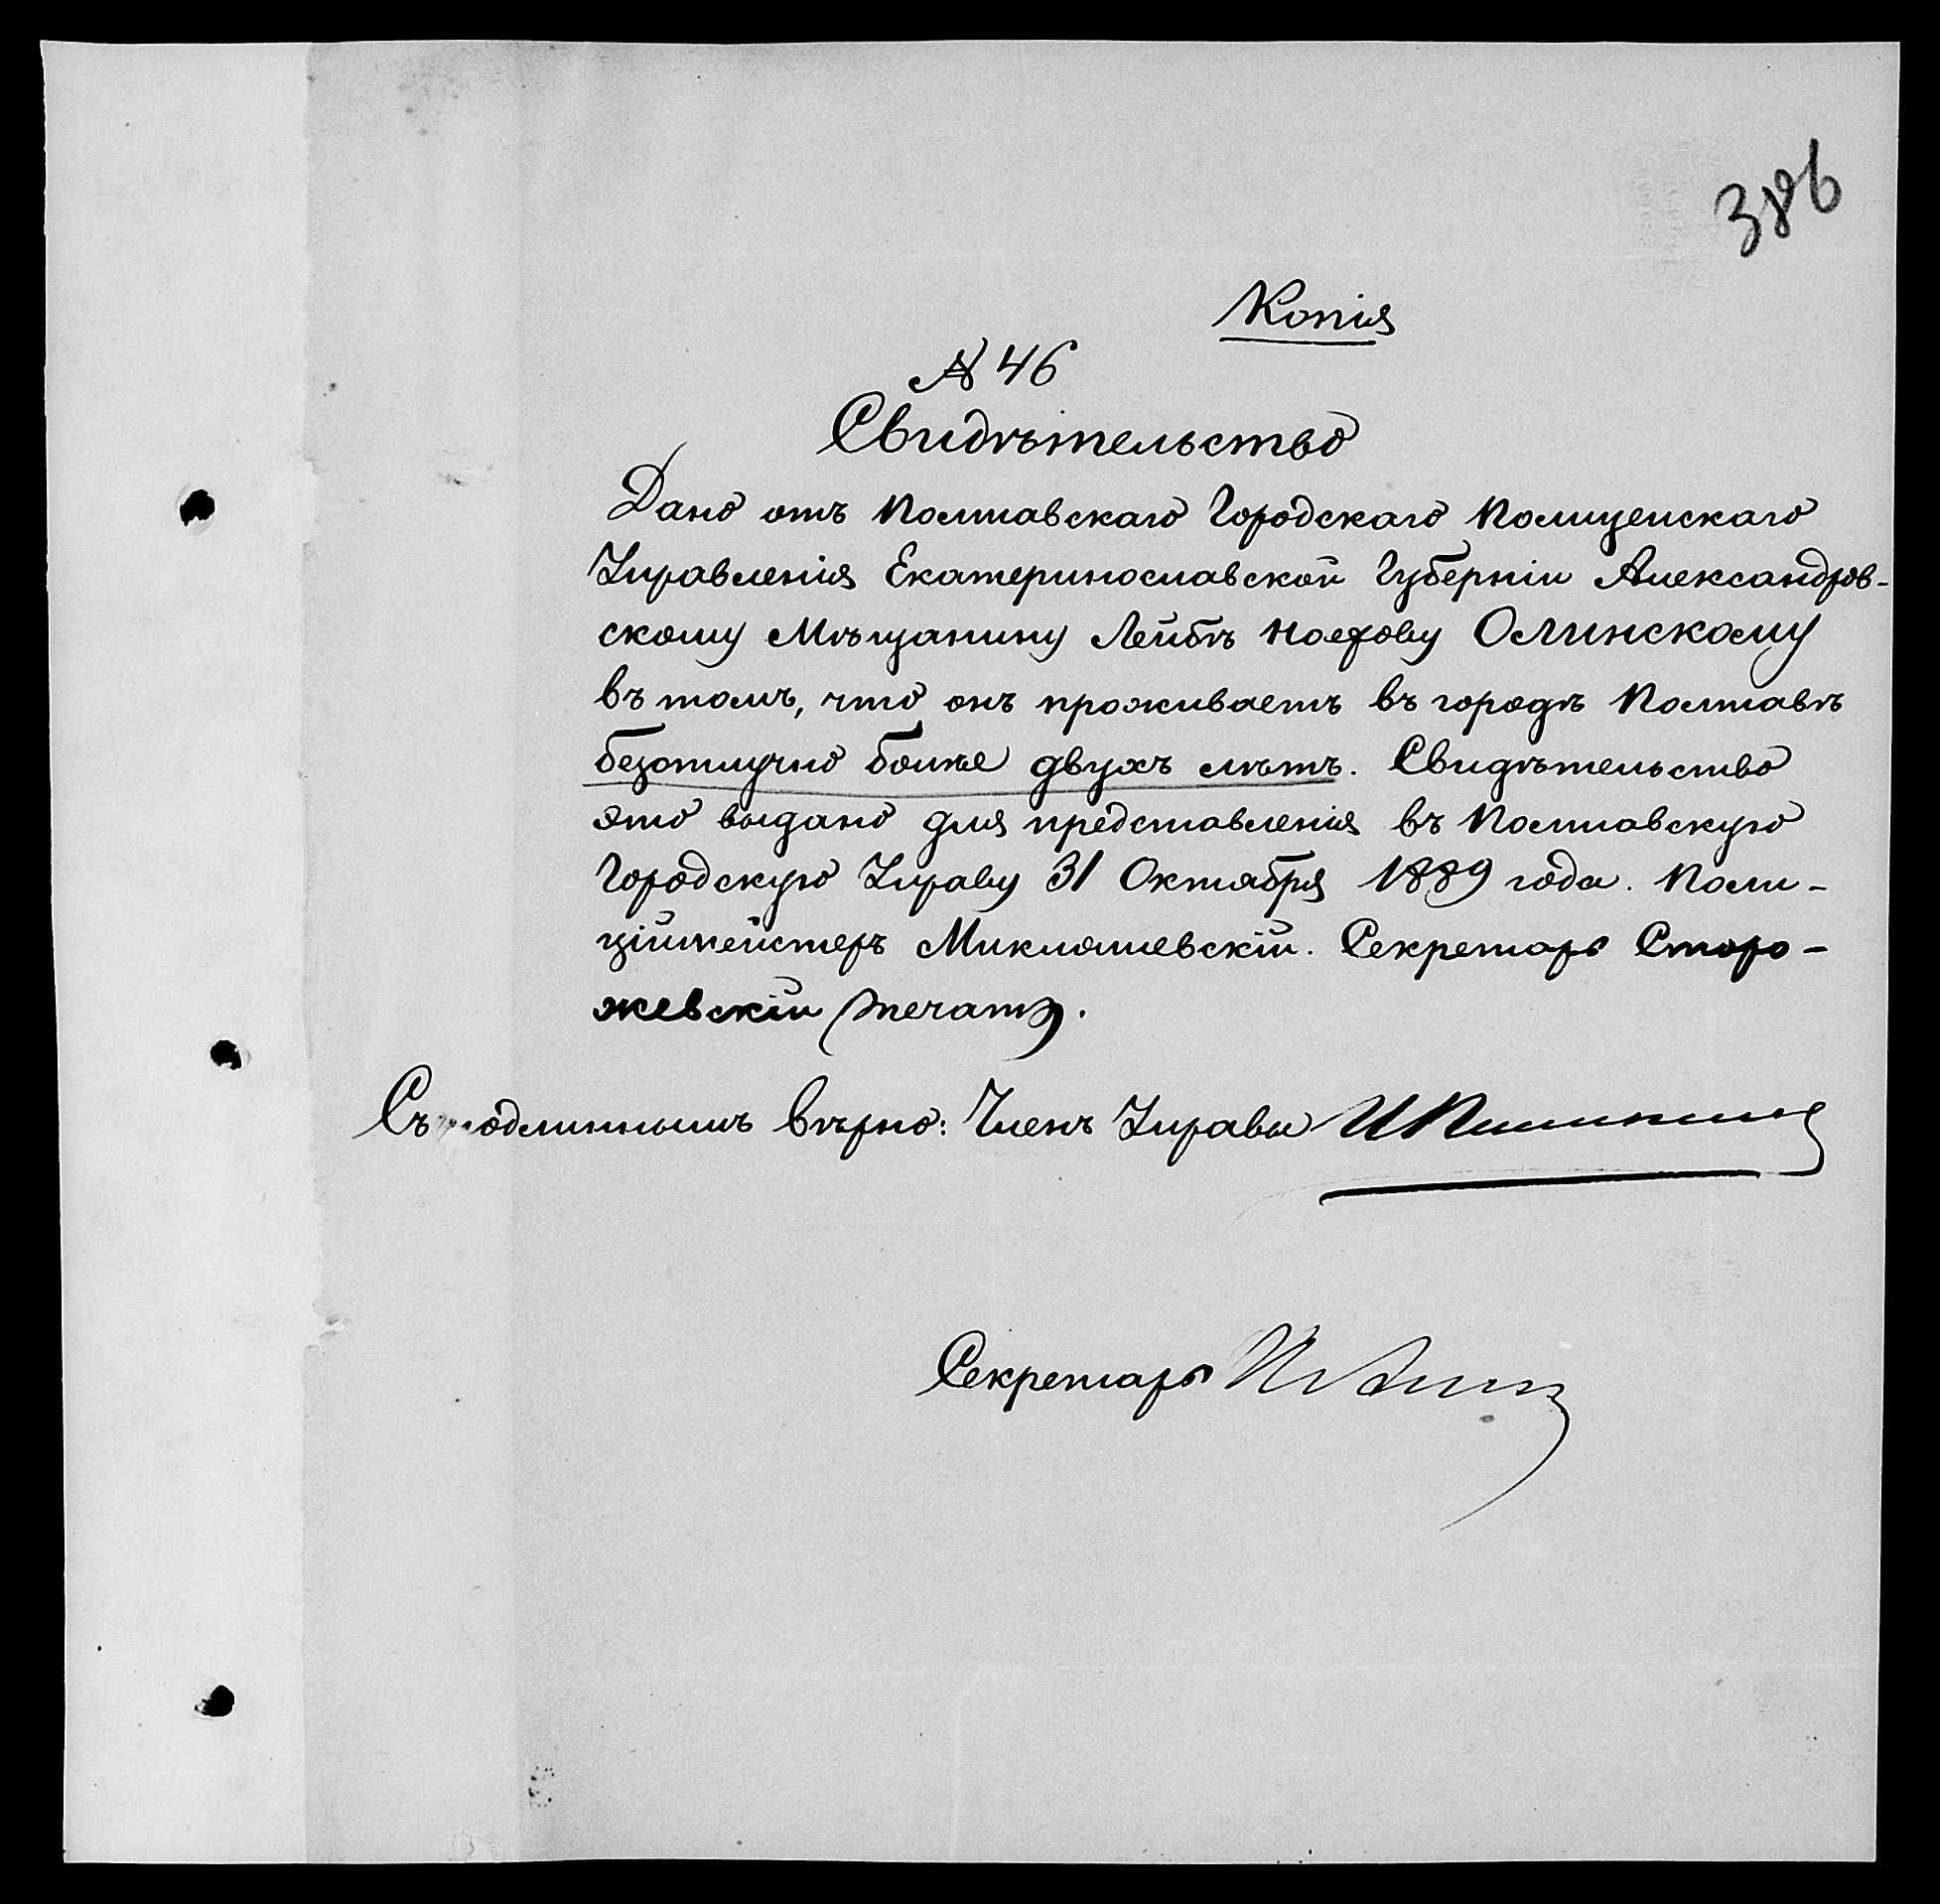 386
Копія
№ 46
Свидѣтельство
Дано отъ Полтавскаго Городскаго Полицейскаго
Управленія Екатеринославской Губерніи Александров-
скому Мѣщанину Лейбѣ Ноехову Олинскому
въ томъ, что онъ проживаетъ въ городѣ Полтавѣ
безотлучно болѣе двухъ лѣтъ. Свидѣтельство
это выдано для представленія въ Полтавскую
Городскую Управу 31 Октября 1889 года. Поли-
ціймейстеръ Миклашевскій. Секретарь Сторо-
жевскій (печать).
Съ подлиннымъ вѣрно: Членъ Управы
Секретарь